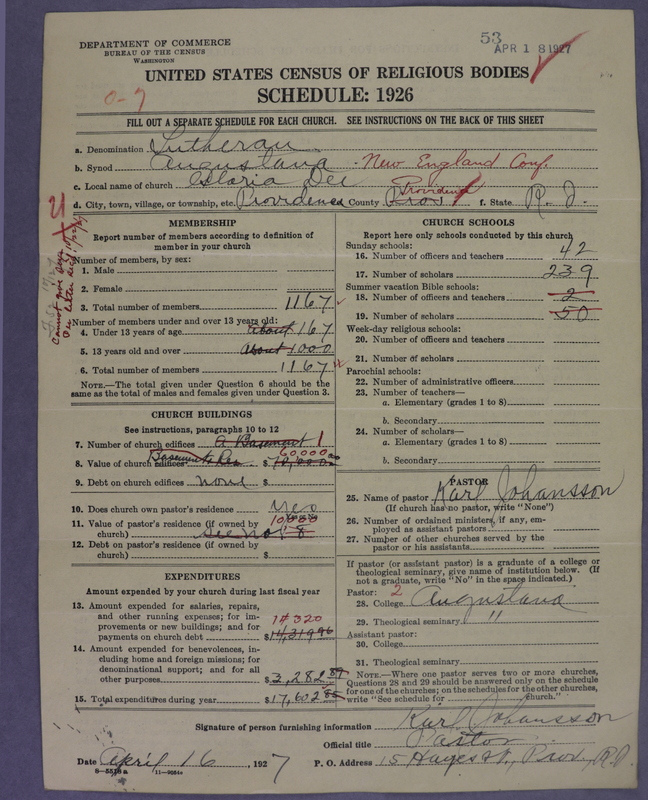 DEPARTMENT OF COMMERCE
BUREAU OF THE CENSUS
WASHINGTON
53
APR 18 1927
UNITED STATES CENSUS OF RELIGIOUS BODIES
SCHEDULE: 1926
0-7
FILL OUT A SEPARATE SCHEDULE FOR EACH CHURCH. SEE INSTRUCTIONS ON THE BACK OF THIS SHEET
a. Denomination Lutheran
b. Synod Augustana New England Conf.
c. Local name of church Gloria Dei
d. City, town, village, or township, etc. Providence County Prov Providence f. State R. I.
MEMBERSHIP
Report number of members according to definition of
member in your church
Number of members, by sex:
1. Male
2. Female
3. Total number of members 1167
Number of members under and over 13 years old:
4. Under 13 years of age about 167
5. 13 years old and over About 1000
6. Total number of members 1167
NOTE.—The total given under Question 6 should be the
same as the total of males and females given under Question 3.
CHURCH BUILDINGS
See instructions, paragraphs 10 to 12
7. Number of church edifices a Basement 1
8. Value of church edifices $ 60,000
9. Debt on church edifices none $
10. Does church own pastor's residence Yes
11. Value of pastor's residence (if owned by
church) 10,000 see no. 8
12. Debt on pastor's residence (if owned by
church) $
EXPENDITURES
Amount expended by your church during last fiscal year
13. Amount expended for salaries, repairs,
and other running expenses; for im-
provements or new buildings; and for
payments on church debt $ 14,319.96 14320
14. Amount expended for benevolences, in-
cluding home and foreign missions; for
denominational support; and for all
other purposes $ 3,282.89
15. Total expenditures during year $ 17,602.85
CHURCH SCHOOLS
Report here only schools conducted by this church
Sunday schools:
16. Number of officers and teachers 42
17. Number of scholars 239
Summer vacation Bible schools:
18. Number of officers and teachers 2
19. Number of scholars 50
Week-day religious schools:
20. Number of officers and teachers
21. Number of scholars
Parochial schools:
22. Number of administrative officers
23. Number of teachers—
a. Elementary (grades 1 to 8)
b. Secondary
24. Number of scholars—
a. Elementary (grades 1 to 8)
b. Secondary
PASTOR
25. Name of pastor Karl Johansson
(If church has no pastor, write "None")
26. Number of ordained ministers, if any, em-
ployed as assistant pastors
27. Number of other churches served by the
pastor or his assistants
If pastor (or assistant pastor) is a graduate of a college or
theological seminary, give name of institution below. (If
not a graduate, write "No" in the space indicated.)
Pastor: 2
28. College Augustana
29. Theological seminary "
Assistant pastor:
30. College
31. Theological seminary
NOTE.—Where one pastor serves two or more churches,
Questions 28 and 29 should be answered only on the schedule
for one of the churches; on the schedules for the other churches,
write "See schedule for church."
Signature of person furnishing information Karl Johansson
Official title Pastor
Date April 16, 1927 P. O. Address 15 Hayes St., Prov., R.I.